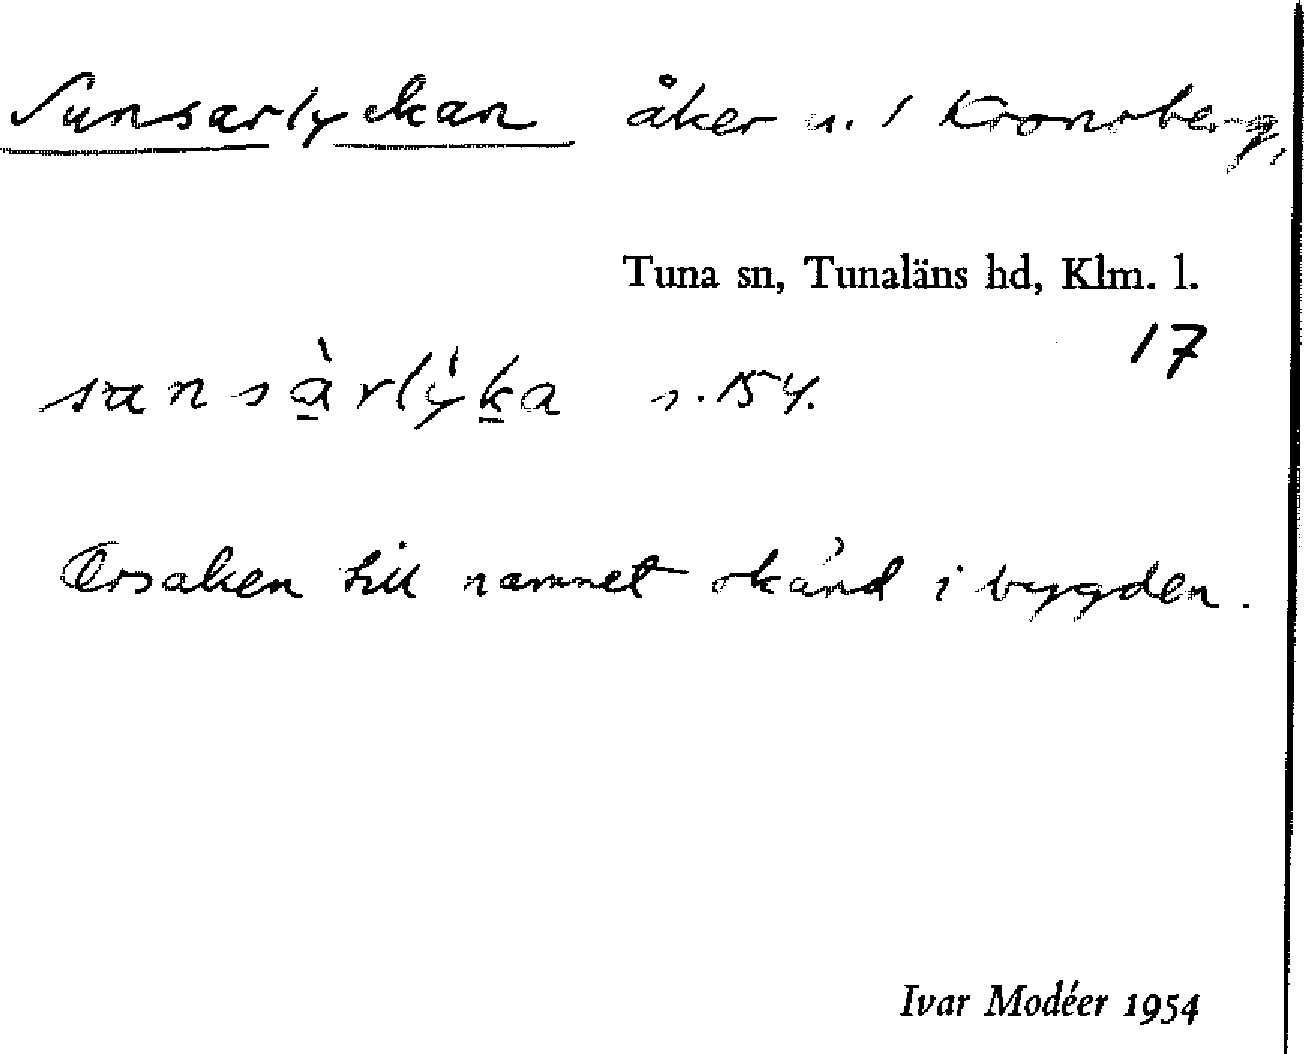 Sunsarlyckan åker u. 1 Kronoberg,
Tuna sn, Tunaläns hd, Klm. l.
17
s. 154.
Orsaken till namnet okänd i bygden.
Ivar Modéer 1954